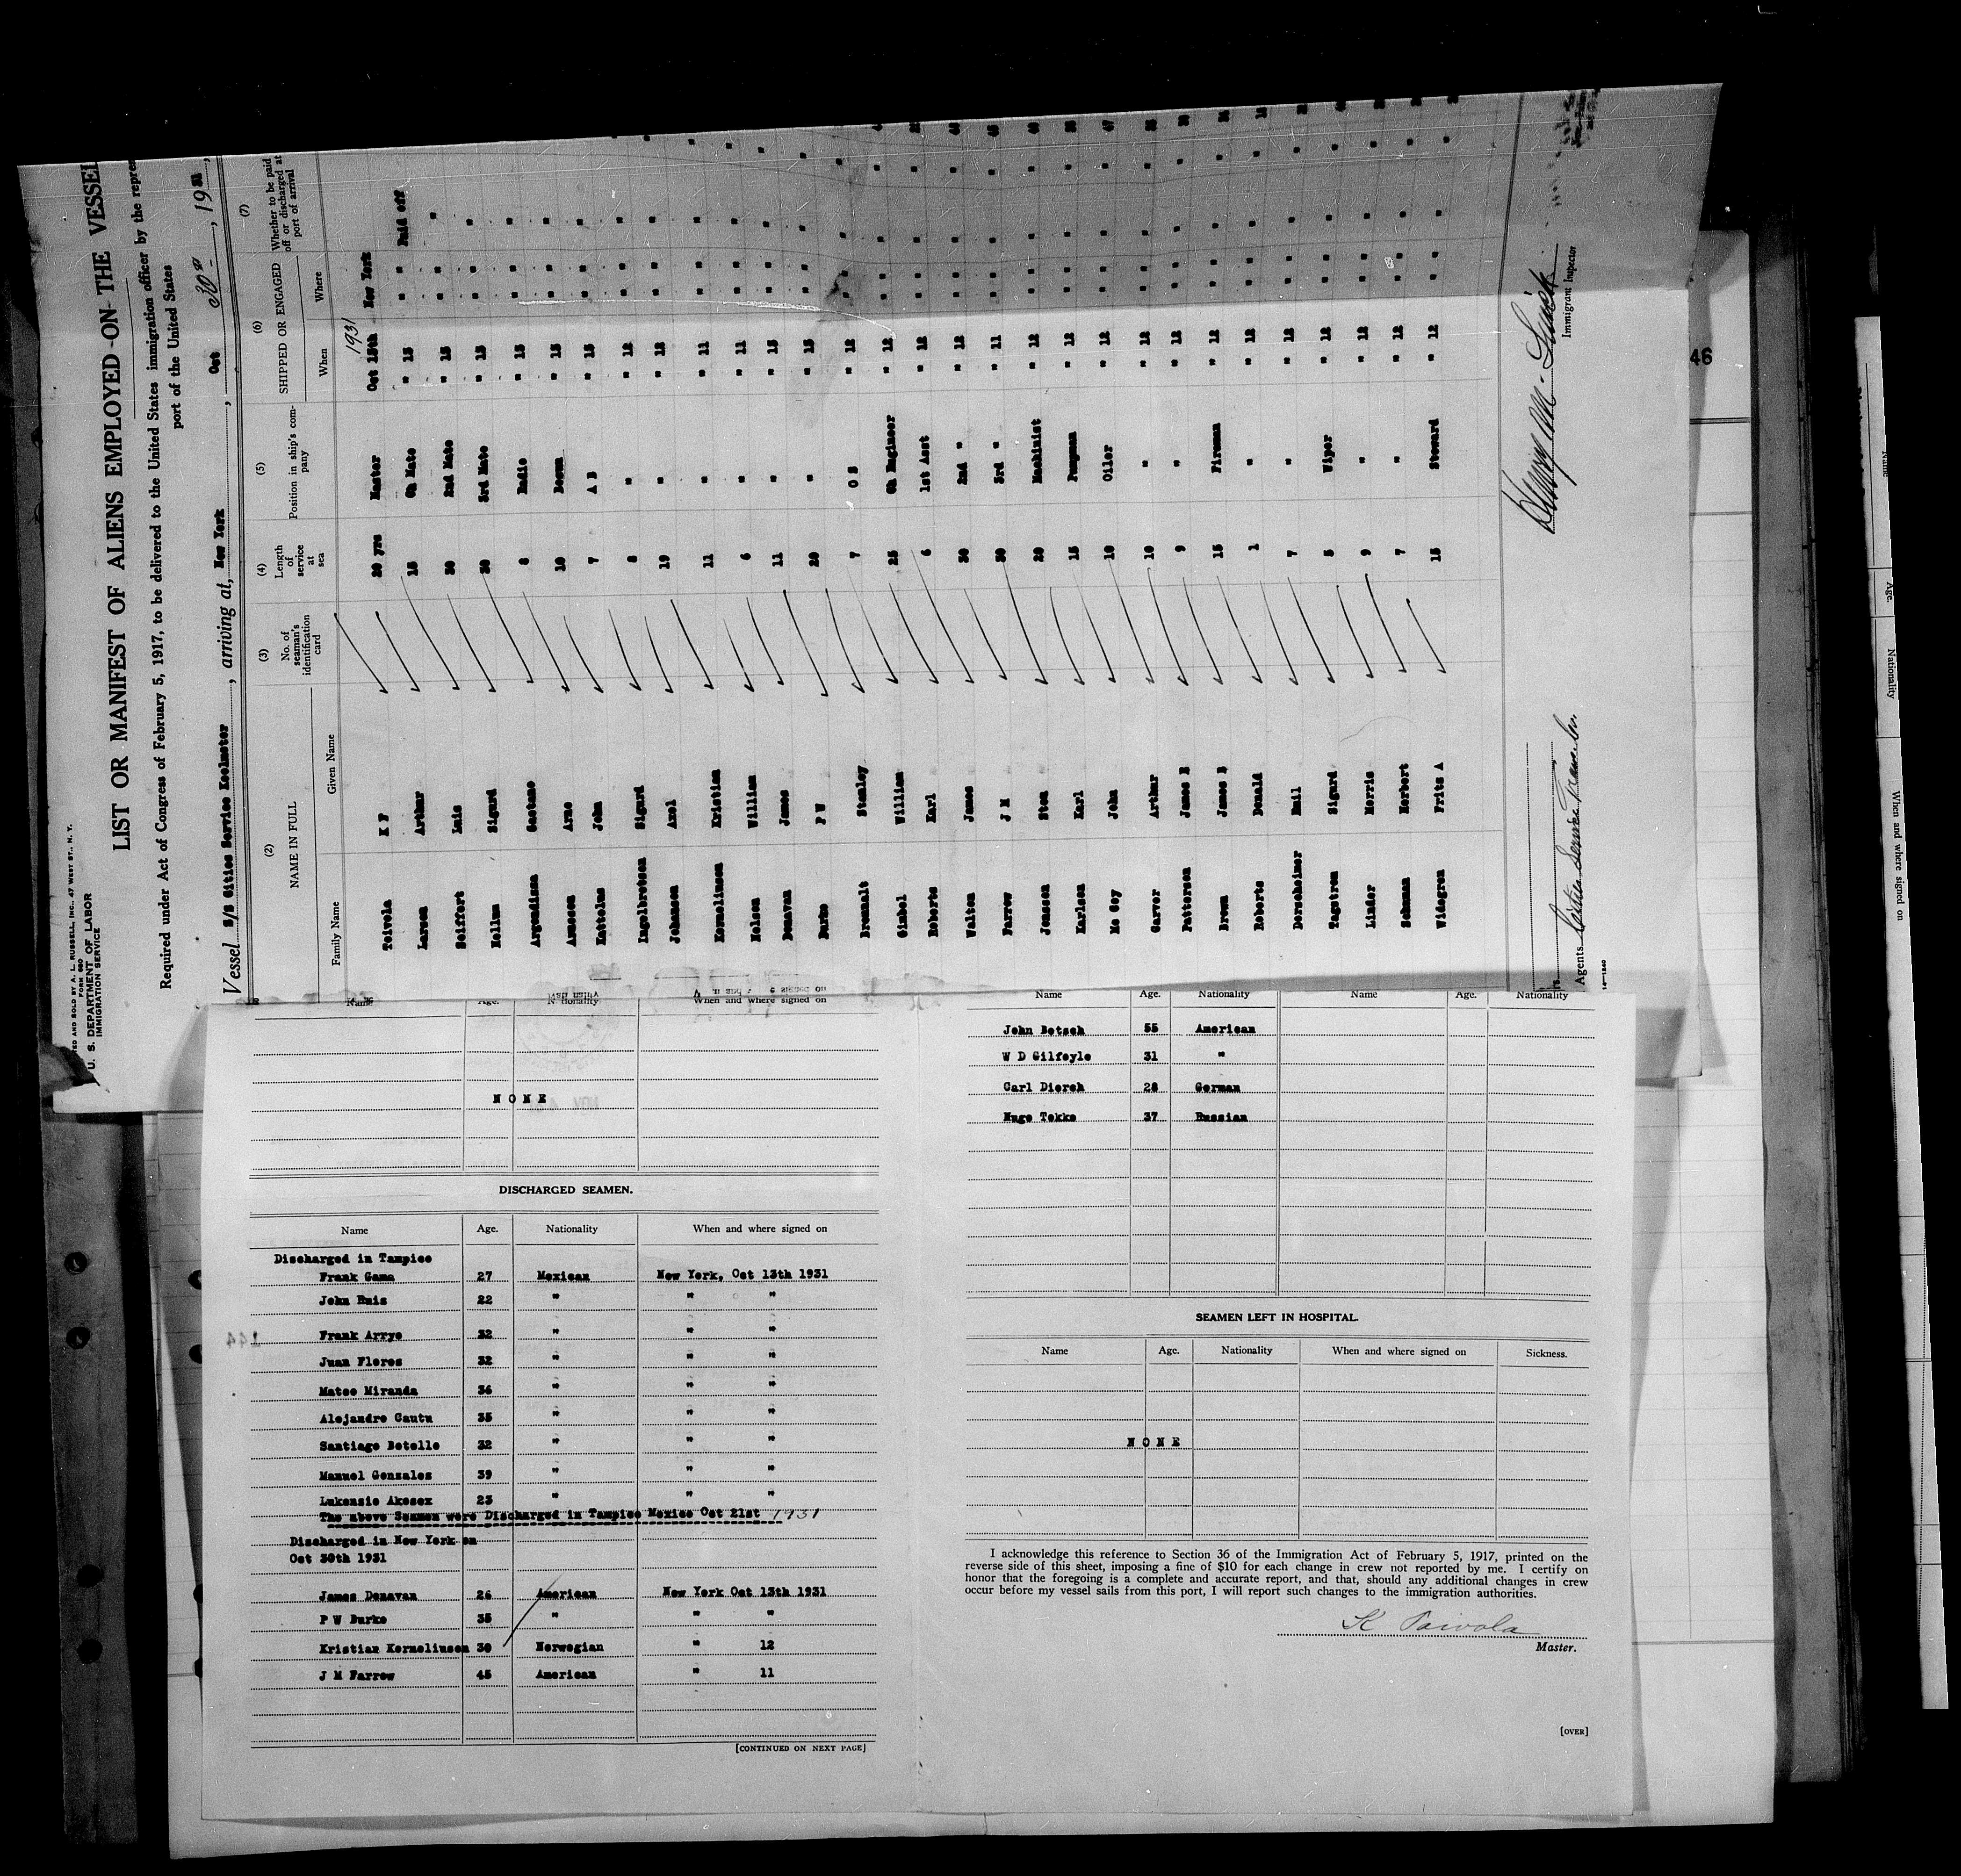 TED AND SOLD BY A. L. RUSSELL, INC., 47 WEST ST., N. Y.
FORM 680
U. S. DEPARTMENT OF LABOR
IMMIGRATION SERVICE
LIST OR MANIFEST OF ALIENS EMPLOYED ON THE VESSEL
Required under Act of Congress of February 5, 1917, to be delivered to the United States immigration officer by the repre
port of the United States
Vessel S/S Cities Service Koolmotor, arriving at, New York, Oct 30th, 1931,
(2) (3) (4) (5) (6) (7)
NAME IN FULL No. of seaman's identification card Length of service at sea Position in ship's company SHIPPED OR ENGAGED Whether to be paid off or discharged at port of arrival
Family Name Given Name When Where
1931
Toivola K F 20 yrs Master Oct 15th New York
Larsen Arthur 15 Ch Mate " 15 " " Paid off
Seiffert Luis 20 2nd Mate " 15 " " "
Kellum Sigurd 20 3rd Mate " 15 " " "
Argondizza Gaetano 8 Radio " 15 " " "
Arnesen Arne 10 Bosun " 15 " " "
Kattelus John 7 A B " 15 " " "
Ingelbretsen Sigurd 8 " " 12 " " "
Johansen Axel 19 " " 12 " " "
Korneliusen Kristian 11 " " 11 " " "
Nelson William 6 " " 11 " " "
Donavan James 11 " " 13 " " "
Burke P W 20 " " 13 " " "
Stanley 7 O S " 12 " " "
Gimbel William 25 Ch Engineer " 12 " " "
Roberts Karl 6 1st Asst " 12 " " "
Walton James 30 2nd " " 12 " " "
Farrow J M 30 3rd " " 11 " " "
Jonsson Sten 20 Machinist " 12 " " "
Karlsen Karl 15 Pumpman " 12 " " "
Mc Coy John 10 Oiler " 12 " " "
Carver Arthur 10 " " 12 " " "
Patterson James E 9 " " 12 " " "
Brown James B 15 Fireman " 12 " " "
Roberts Donald 1 " " 12 " " "
Dorscheimer Emil 7 " " 12 " " "
Tagstrom Sigurd 5 Wiper " 12 " " "
Linder Morris 9 " " 12 " " "
Schuman Herbert 7 " " 12 " " "
Widegren Fritz A 15 Steward " 12 " " "
Immigrant Inspector
Agents Cities Service Trans. Co.
46
Name Age. Nationality When and where signed on
Name Age. Nationality When and where signed on
NONE
DISCHARGED SEAMEN.
Name Age. Nationality When and where signed on
Discharged in Tampico
Frank Gama 27 Mexican New York, Oct 13th 1931
John Ruis 22 " " "
Frank Arryo 32 " " "
Juan Flores 32 " " "
Mateo Miranda 36 " " "
Alejandro Cautu 35 " " "
Santiago Botello 32 " " "
Manuel Gonzales 39 " " "
Lukenzie Akosex 23 " " "
The above Seamen were Discharged in Tampico Mexico Oct 21st 1931
Discharged in New York on
Oct 30th 1931
James Donavan 26 American New York Oct 13th 1931
P W Burke 35 " " "
Kristian Korneliusen 30 Norwegian " 12
J M Farrow 45 American " 11
[CONTINUED ON NEXT PAGE]
Name Age. Nationality Name Age. Nationality
John Botsch 55 American
W D Gilfoyle 31 "
Carl Dierch 28 German
Hugo Tekko 37 Russian
SEAMEN LEFT IN HOSPITAL.
Name Age. Nationality When and where signed on Sickness.
NONE
I acknowledge this reference to Section 36 of the Immigration Act of February 5, 1917, printed on the
reverse side of this sheet, imposing a fine of $10 for each change in crew not reported by me. I certify on
honor that the foregoing is a complete and accurate report, and that, should any additional changes in crew
occur before my vessel sails from this port, I will report such changes to the immigration authorities.
K Toivola
Master.
[OVER]